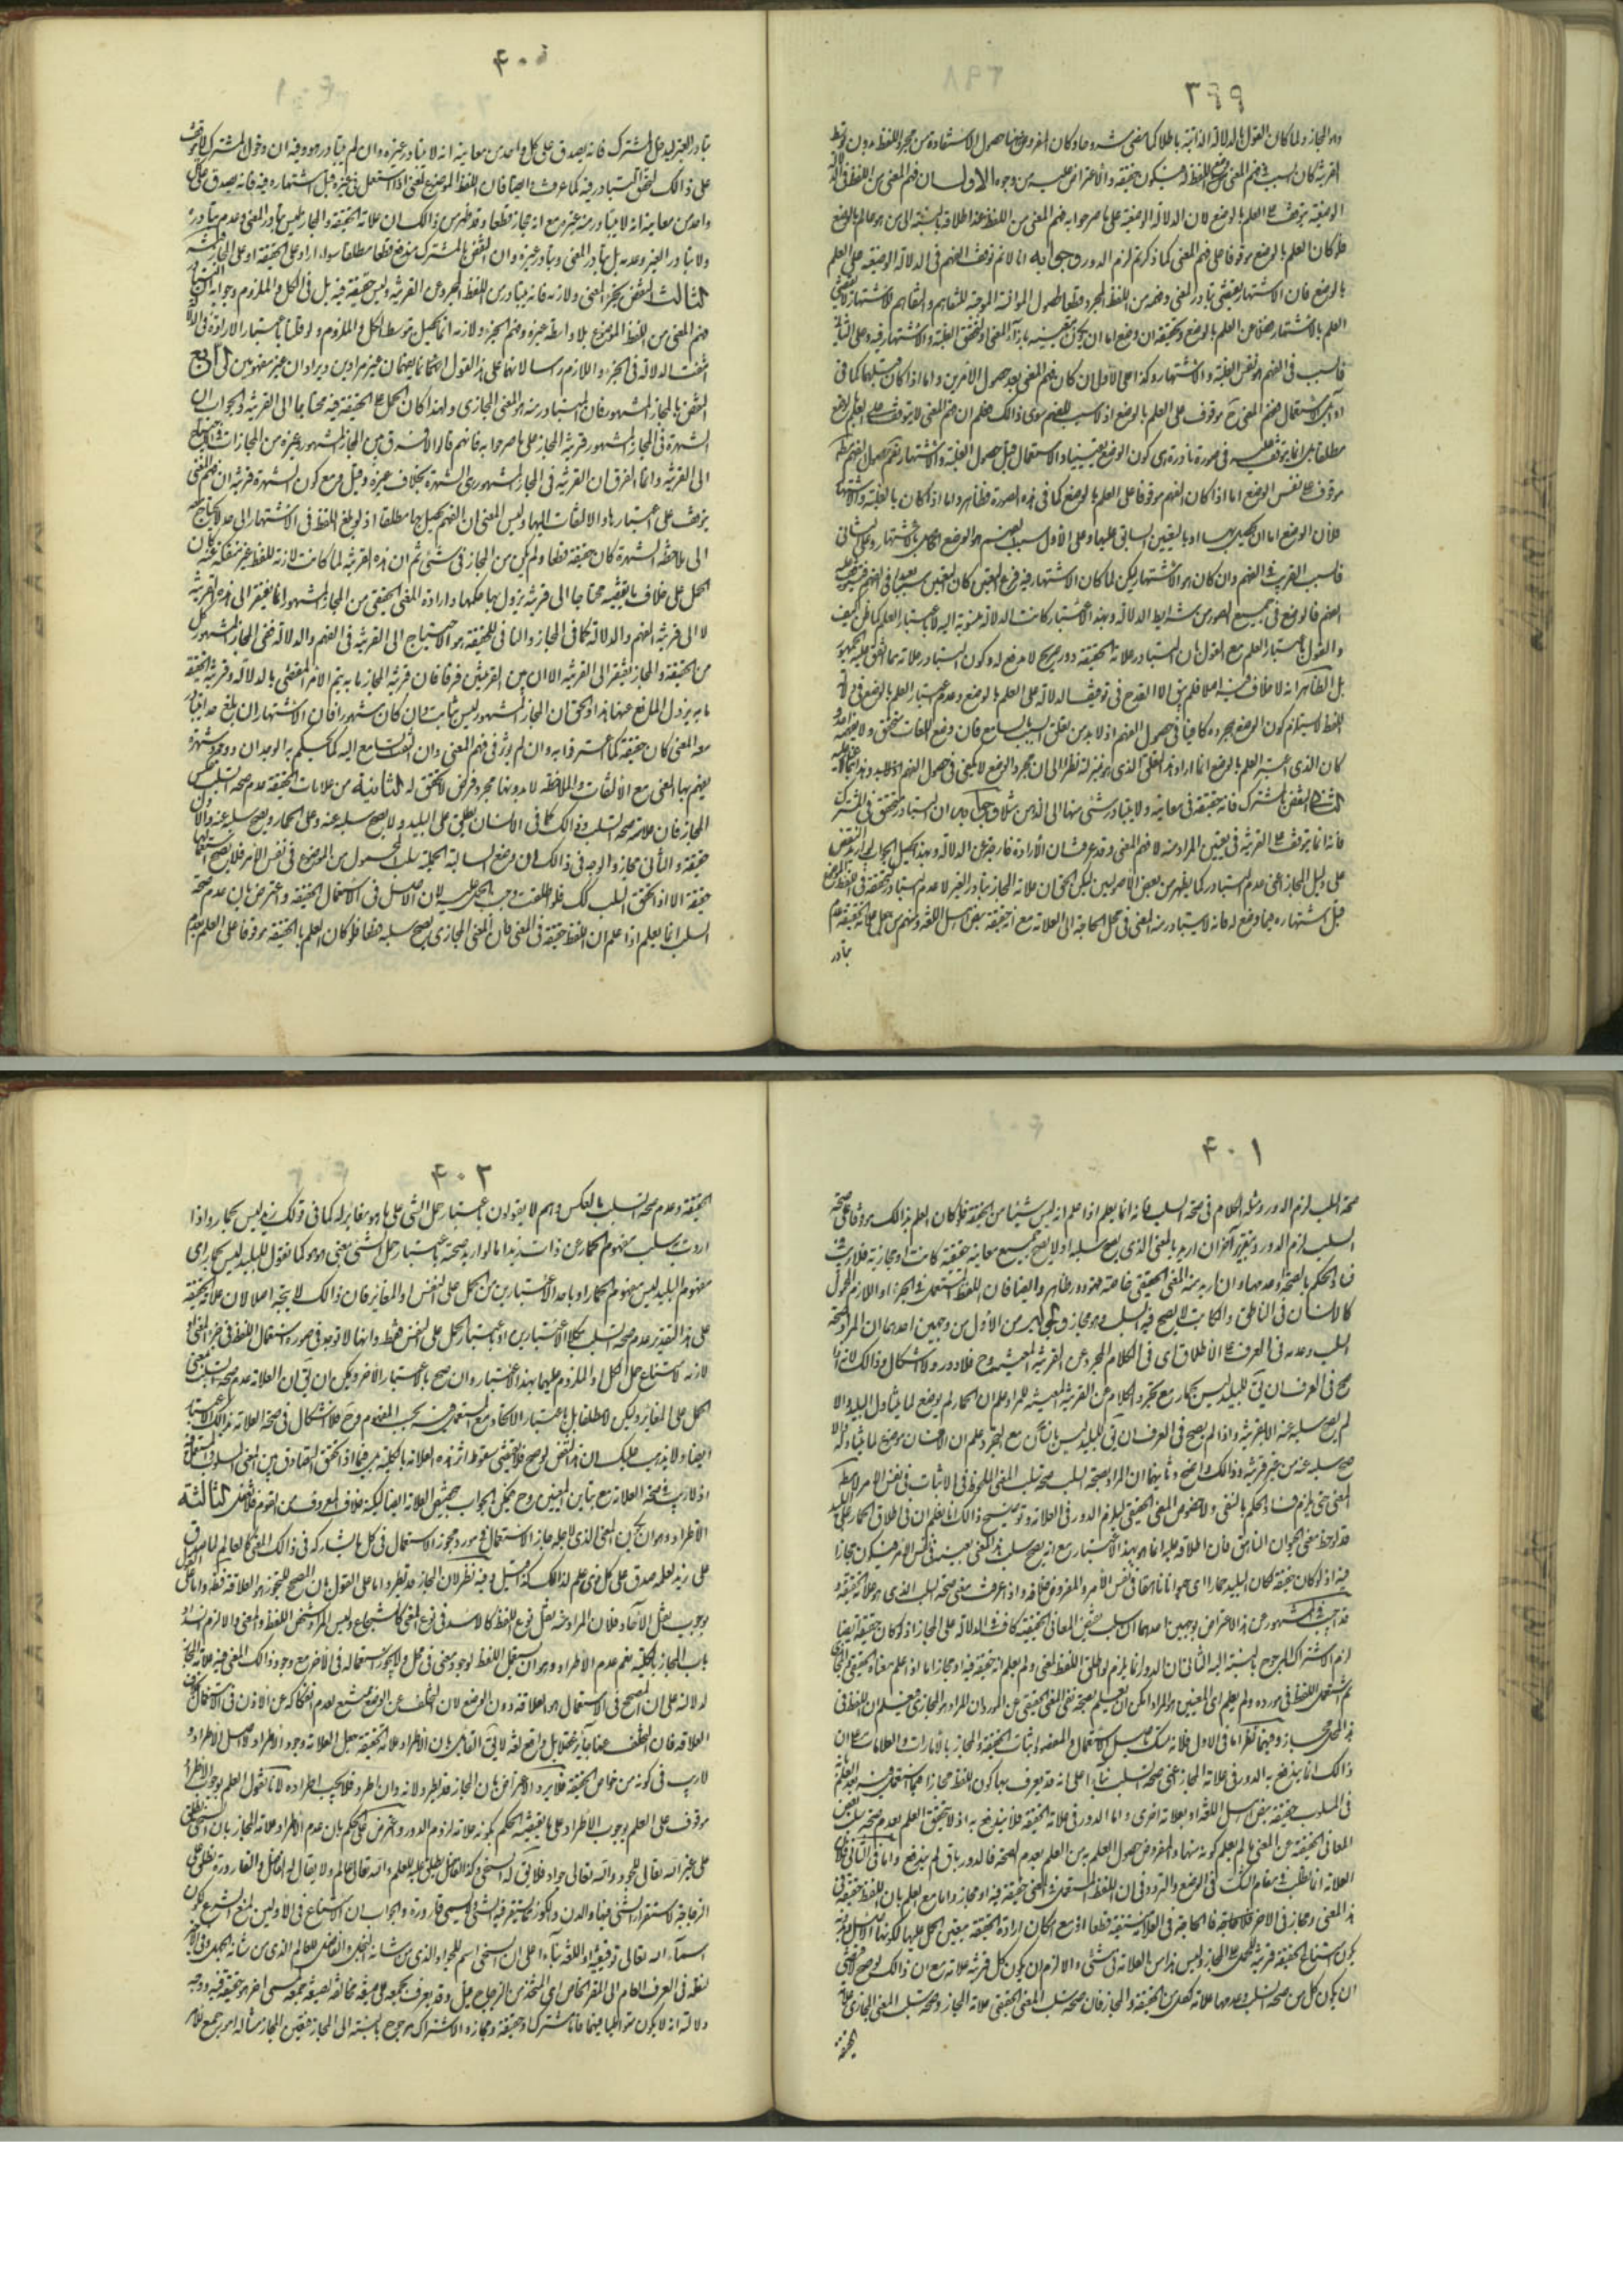 ٣٩٩
وهو المجاز ولما كان القول بالدلالة الذاتية باطلا كما مضى مشروحا وكان المفروض هنا حصول الاستفادة من مجرد اللفظ بدون توسط
القرينة كان السبب في فهم المعنى وضع اللفظ له فيكون حقيقة والاعتراض عليه من وجوه الاول ان فهم المعنى من اللفظ في الدلالة
الوضعية يتوقف على العلم بالوضع لان الدلالة الوضعية على ما صرحوا به فهم المعنى من اللفظ عند اطلاقه بالنسبة الى من هو عالم بالوضع
فلو كان العلم بالوضع موقوفا على فهم المعنى كما ذكرتم لزم الدور وجوابه انا لا نم توقف الفهم في الدلالة الوضعية على العلم
بالوضع فان الاشتهار يقتضي تبادر المعنى وفهمه من اللفظ المجرد قطعا لحصول الموانسة الموجبة للتفاهم
العلم بالاشتهار فضلا عن العلم بالوضع وتحقيقه ان وضع اما ان يكون بتعيينه بازاء المعنى او لتحقق الغلبة والاشتهار فيه وعلى الثاني
فالسبب في الفهم هو نفس الغلبة والاشتهار وكذا على الاول ان كان فهم المعنى بعد حصول الامرين واما اذا كان قبلهما كما في
اوائل الاستعمال ففهم المعنى ح موقوف على العلم بالوضع اذ لا سبب للفهم سوى ذلك فعلم ان فهم المعنى لا يتوقف على العلم بالوضع
مطلقا بل انما يتوقف عليه في صورة نادرة اى كون الوضع تعيينيا والاستعمال قبل حصول الغلبة والاشتهار
موقوف على نفس الوضع اما اذا كان الفهم موقوفا على العلم بالوضع كما في هذه الصورة فظاهر واما اذا كان بالغلبة والاشتهار
فلان الوضع اما ان يحصل بهما او بالتعيين السابق عليهما وعلى الاول سبب الفهم هو الوضع الحاصل بالاشتهار وعلى الثاني
فالسبب القريب في الفهم وان كان هو الاشتهار لكن لما كان الاشتهار فيه فرع التعيين كان التعيين سببا بعيدا في الفهم
فالوضع في جميع الصور من شرايط الدلالة وبهذا الاعتبار كانت الدلالة منسوبة اليه لا باعتبار العلم كما ظن كيف
والقول باعتبار العلم مع القول بان التبادر علامة الحقيقة دور صريح لا مدفع له وكون التبادر علامة مما اتفق عليه الجمهور
بل الظاهر انه لا خلاف فيه اصلا فلم يبق الا القدح في توقف الدلالة على العلم بالوضع وعدم اعتبار العلم بالوضع في دلالة
اللفظ لا يستلزم كون الوضع بمجرده كافيا في حصول الفهم اذ لا بد من تعلق السبب بالسامع فان وضع اللغات متحقق ولا يفهمه احد
كان الذى اعتبر العلم بالوضع انما اراد هذا التعلق الذى هو بمنزلة نظرا الى ان مجرد الوضع لا يكفى في حصول الفهم
الثاني النقض بالمشترك فانه حقيقة في معانيه ولا يتبادر شئ منها الى الذهن وجوابه ان التبادر متحقق في المشترك
فانه انما يتوقف على القرينة في تعيين المراد منه لا فهم المعنى وقد عرفت ان الارادة خارجة عن الدلالة وبهذا يحصل الجواب
على دليل المجاز اعنى عدم التبادر كما يظهر من بعض الاصوليين لكن الحق ان علامة المجاز تبادر الغير لا عدم التبادر
قبل اشتهاره فيما وضع له فانه لا يتبادر منه المعنى في محل الحاجة الى العلامة مع انه حقيقة بنص اهل اللغة ومنهم من جعل علامة الحقيقة عدم
تبادر
٤٠٠
تبادر الغير ليدخل المشترك فانه يصدق على كل واحد من معانيه انه لا يتبادر غيره وان لم يتبادر هو وفيه ان دخول المشترك
على ذلك لتحقق التبادر فيه كما عرفت وايضا فان اللفظ الموضوع لمعنى اذا استعمل في غيره قبل اشتهاره فيه فانه يصدق على كل
واحد من معانيه انه لا يتبادر منه غيره مع انه مجاز قطعا وقد ظهر من ذلك ان علامة الحقيقة والمجاز ليس تبادر المعنى وعدم تبادره
ولا تبادر الغير وعدمه بل تبادر المعنى وتبادر غيره وان النقض بالمشترك مندفع قطعا مطلقا سواء اورد على الحقيقة او على المجاز
الثالث النقض بجزء المعنى ولازمه فانه يتبادر من اللفظ المجرد عن القرينة وليس حقيقة فيه بل في الكل والملزوم وجوابه
فهم المعنى من اللفظ الموضوع بلا واسطة غيره وفهم الجزء ولازمه انما يحصل بتوسط الكل والملزوم ولو قلنا باعتبار الارادة في الدلالة
انتفت الدلالة في الجزء واللازم راسا لانهما على هذا القول انما يفهمان غير مرادين ويرادان غير مفهومين الرابع
النقض بالمجاز المشهور فان المتبادر منه هو المعنى المجازى ولهذا كان الحمل على الحقيقة فيه محتاجا الى القرينة والجواب ان
الشهرة في المجاز المشهور قرينة المجاز على ما صرحوا به فانهم قالوا لا فرق بين المجاز المشهور وغيره من المجازات
الى القرينة وانما الفرق ان القرينة في المجاز المشهور هى الشهرة بخلاف غيره
يتوقف على اعتبارها والالتفات اليها وليس المعنى ان الفهم يحصل بها مطلقا اذ لو بلغ اللفظ في الاشتهار الى حد لا يحتاج معه
الى ملاحظة الشهرة كان حقيقة قطعا ولم يكن من المجاز في شئ ثم ان هذه القرينة لما كانت لازمة للفظ غير منفكة عنه كان
الحمل على خلاف ما يقتضيه محتاجا الى قرينة يزول بها حكمها وارادة المعنى الحقيقي من المجاز المشهور انما يفتقر الى هذه القرينة
لا الى قرينة الفهم والدلالة كما في المجاز والمنافي للحقيقة هو الاحتياج الى القرينة في الفهم والدلالة ففي المجاز المشهور كل
من الحقيقة والمجاز يفتقر الى القرينة الا ان بين القرينتين فرقا فان قرينة المجاز ما به يتم الامر المقتضى بالدلالة وقرينة الحقيقة
ما به يزول المانع عنها هذا والحق ان المجاز المشهور ليس بثابت فان كان مشهورا فان الاشتهار ان بلغ حدا يتبادر
معه المعنى كان حقيقة كما اعترفوا به وان لم يؤثر في فهم المعنى وان التفت السامع اليه كما يحكم به الوجدان ووجود شهرة
يفهم بها المعنى مع الالتفات والملاحظة لا بدونهما مجرد فرض لا تحقق له الثانية من علامات الحقيقة عدم صحة السلب بعكس
المجاز فان علامته صحة السلب وذلك كما في الانسان يطلق على البليد ولا يصح سلبه عنه وعلى الحمار ويصح سلبه عنه والاول
حقيقة والثاني مجاز والوجه في ذلك ان وضع السالبة الحملية سلب المحمول من الموضوع في نفس الامر
حقيقة الا اذا تحقق السلب كك فلو اطلقت وجب الحمل عليه لان الاصل في الاستعمال الحقيقة واعترض بان عدم صحة
السلب انما يعلم اذا علم ان اللفظ حقيقة في المعنى فان المعنى المجازى يصح سلبه قطعا فلو كان العلم بالحقيقة موقوفا على العلم بعدم
٤٠١
صحة السلب لزم الدور ومثله الكلام في صحة السلب فانه انما يعلم اذا علم انه ليس شيئا من الحقيقة فلو كان العلم بذلك موقوفا على صحة
السلب لزم الدور وبتقرير آخر ان اريد بالمعنى الذى يصح سلبه او لا يصح جميع معانيه حقيقية كانت او مجازية فلا ريب في
فساد الحكم بالصحة وعدمها وان اريد منه المعنى الحقيقي خاصة فهو دور ظاهر وايضا فان اللفظ المستعمل في الجزء او اللازم المحمول
كالانسان في الناطق والكاتب لا يصح فيه السلب وهو مجاز والجواب من الاول من وجهين احدهما ان المراد صحة
السلب وعدمه في العرف على الاطلاق اى في الكلام المجرد عن القرينة المعينة وح فلا دور ولا اشكال وذلك لانه اذا
صح في العرف ان يق للبليد ليس بحمار مع تجرد الكلام عن القرينة المعينة للمراد علم ان الحمار لم يوضع لما يتناول البليد والا
لم يصح سلبه عنه الا بقرينة واذا لم يصح في العرف ان يق للبليد ليس بانسان مع التجرد علم ان الانسان موضوع لما يتناوله والا
صح سلبه عنه من غير قرينة وذلك واضح وثانيهما ان المراد بصحة السلب صحة سلب المعنى الملحوظ في الاثبات في نفس الامر لا مطلق
المعنى حتى يلزم فساد الحكم بالنفى ولا خصوص المعنى الحقيقي ليلزم الدور في العلامة وتوضيح ذلك انا نعلم ان في اطلاق الحمار على البليد
قد لوحظ معنى الحيوان الناهق فان اطلاقه عليه انما هو بهذا الاعتبار مع انه يصح سلب هذا المعنى بعينه في نفس الامر فيكون مجازا
فيه اذ لو كان حقيقة لكان البليد حمارا اى حيوانا ناهقا في نفس الامر والمفروض خلافه واذا عرفت معنى صحة السلب الذى هو علامة الحقيقة و
قد اجيب المشهور عن هذا الاعتراض بوجهين احدهما ان سلب بعض المعاني الحقيقية كاف في الدلالة على المجاز اذ لو كان حقيقة ايضا
لزم الاشتراك المرجوح بالنسبة اليه الثاني ان الدور انما يلزم لو اطلق اللفظ لمعنى ولم يعلم انه حقيقة فيه او مجاز اما اذا علم معناه الحقيقي والمجازى
ثم استعمل اللفظ في مورده ولم يعلم اى المعنيين هو المراد امكن ان يعلم بصحة نفى المعنى الحقيقي عن المورد ان المراد هو المجازى فيعلم ان اللفظ في
هذا المحل مجاز وفيهما نظر اما في الاول
ذلك انما يندفع به الدور في علامة المجاز اعنى صحة السلب بناء على انه قد يعرف بها كون اللفظ مجازا فيما استعمل فيه بعد العلم
في المسلوب حقيقة بنص اهل اللغة او بعلامة اخرى واما الدور في علامة الحقيقة فلا يندفع به اذ لا يتحقق العلم بعدم صحة سلب بعض
المعاني الحقيقية عن المعنى ما لم يعلم كونه منها والمفروض حصول العلم به من العلم بعدم الصحة فالدور باق لم يندفع واما في الثاني فلان
العلامة انما تطلب في مقام الشك في الوضع والتردد في ان اللفظ المستعمل في المعنى حقيقة فيه او مجاز واما مع العلم بان اللفظ حقيقة في
هذا المعنى ومجاز في الآخر فلا حاجة
كون امتناع الحقيقة قرينة للحمل على المجاز وليس هذا من العلامة في شئ والا لزم ان يكون كل قرينة علامة مع ان ذلك لو صح لاقتضى
ان يكون كل من صحة السلب وعدمها علامة لكل من الحقيقة والمجاز فان صحة سلب المعنى الحقيقي علامة المجاز وصحة سلب المعنى المجازى علامة
الحقيقة
٤٠٢
الحقيقة وعدم صحة السلب بالعكس وهم لا يقولون باعتبار حمل الشئ على ما هو مغاير له كما في قولك زيد ليس بحمار واذا
اردت سلب مفهوم الحمار عن ذات زيد اما لو اريد صحته باعتبار حمل الشئ بمعنى هو هو كما نقول للبليد ليس بحمار اى
مفهوم البليد ليس مفهوم الحمار او باحد الاعتبارين من الحمل على النفس او المغاير فان ذلك لا يتجه اصلا لان علامة الحقيقة
على هذا التقدير عدم صحة السلب بكلا الاعتبارين او باعتبار الحمل على النفس فقط وانها لا توجد في صورة استعمال اللفظ في جزء المعنى او
لازمه لامتناع حمل الكل او الملزوم عليهما بهذا الاعتبار وان صح بالاعتبار الآخر ويمكن ان يق ان العلامة عدم صحة السلب بمعنى
الحمل على المغاير ولكن لا مطلقا بل باعتبار الاتحاد مع المستعمل فيه بحسب المفهوم وح فلا اشكال في صحة العلامة بذلك الاعتبار
ايضا ولا يذهب عليك ان هذا النقض لو صح فلا يقتضى سقوط اثر هذه العلامة بالكلية
اذ لا ريب في صحة العلامة مع تباين المعنيين وح يمكن الجواب بتخصيص العلامة ايضا لكنه خلاف المعروف من القوم فلا تغفل الثالثة
الاطراد وهو ان يكون المعنى الذى لاجله جاز الاستعمال في مورد مجوز الاستعمال في كل ما يشاركه في ذلك المعنى كالعالم لما صدق
على زيد لعلمه صدق على كل ذى علم لذلك كذا قيل وفيه نظر لان المجاز قد يطرد اما على القول بان المصحح للتجوز هو العلاقة فقط واما على القول
بوجوب نقل الآحاد فلان المراد منه نقل نوع اللفظ كالاسد في نوع المعنى كالشجاع وليس المراد شخص اللفظ والمعنى والا لزم انسداد
باب المجاز بالكلية نعم عدم الاطراد وهو ان يستعمل اللفظ لوجود معنى في محل ولا يجوز استعماله في الآخر مع وجود ذلك المعنى فيه علامة المجاز
لدلالته على ان المصحح في الاستعمال هو العلاقة دون الوضع لان التخلف عن الوضع ممتنع لعدم انفكاكه عن الاذن في الاستعمال بخلاف
العلاقة فان التخلف عنها جايز عقلا بل واقع لغة لا يق القائل بان الاطراد علامة الحقيقة جعل العلامة وجوب الاطراد لا اصل الاطراد و
لا ريب في كونه من خواص الحقيقة فلا يرد الاعتراض بان المجاز قد يطرد لانه وان اطرد فلا يجب اطراده لانا نقول العلم بوجوب الاطراد
موقوف على العلم بوجوب الاطراد على ما يقتضيه الحكم بكونه علامة لزوم الدور واعترض على الحكم بان عدم الاطراد علامة المجاز بان السخي يطلق
على غير الله تعالى للجود والله تعالى جواد فلا يق له السخي وكذا الفاضل يطلق عليه للعلم والله تعالى عالم ولا يقال له الفاضل والقارورة يطلق على
الزجاجة لاستقرار الشئ فيها والدن والكوز مما يستقر فيه الشئ ولا يسمى قارورة والجواب ان الامتناع في الاولين لمنع الشرع لكون
اسماء الله تعالى توقيفية او اللغة بناء على ان السخي اسم للجواد الذى من شانه البخل والفاضل للعالم الذى من شانه الجهل وفي الاخير
لنقله في العرف العام الى المقر الخاص اى المتخذ من الزجاج قيل وقد يعرف بجمعه على صيغة مخالفة لصيغة جمعه لمسمى آخر هو حقيقة فيه ووجه
دلالته انه لا يكون متواطيا فيهما فاما مشترك او حقيقة ومجاز والاشتراك مرجوح بالنسبة الى المجاز فتعين المجاز مثاله امور جمع للامر